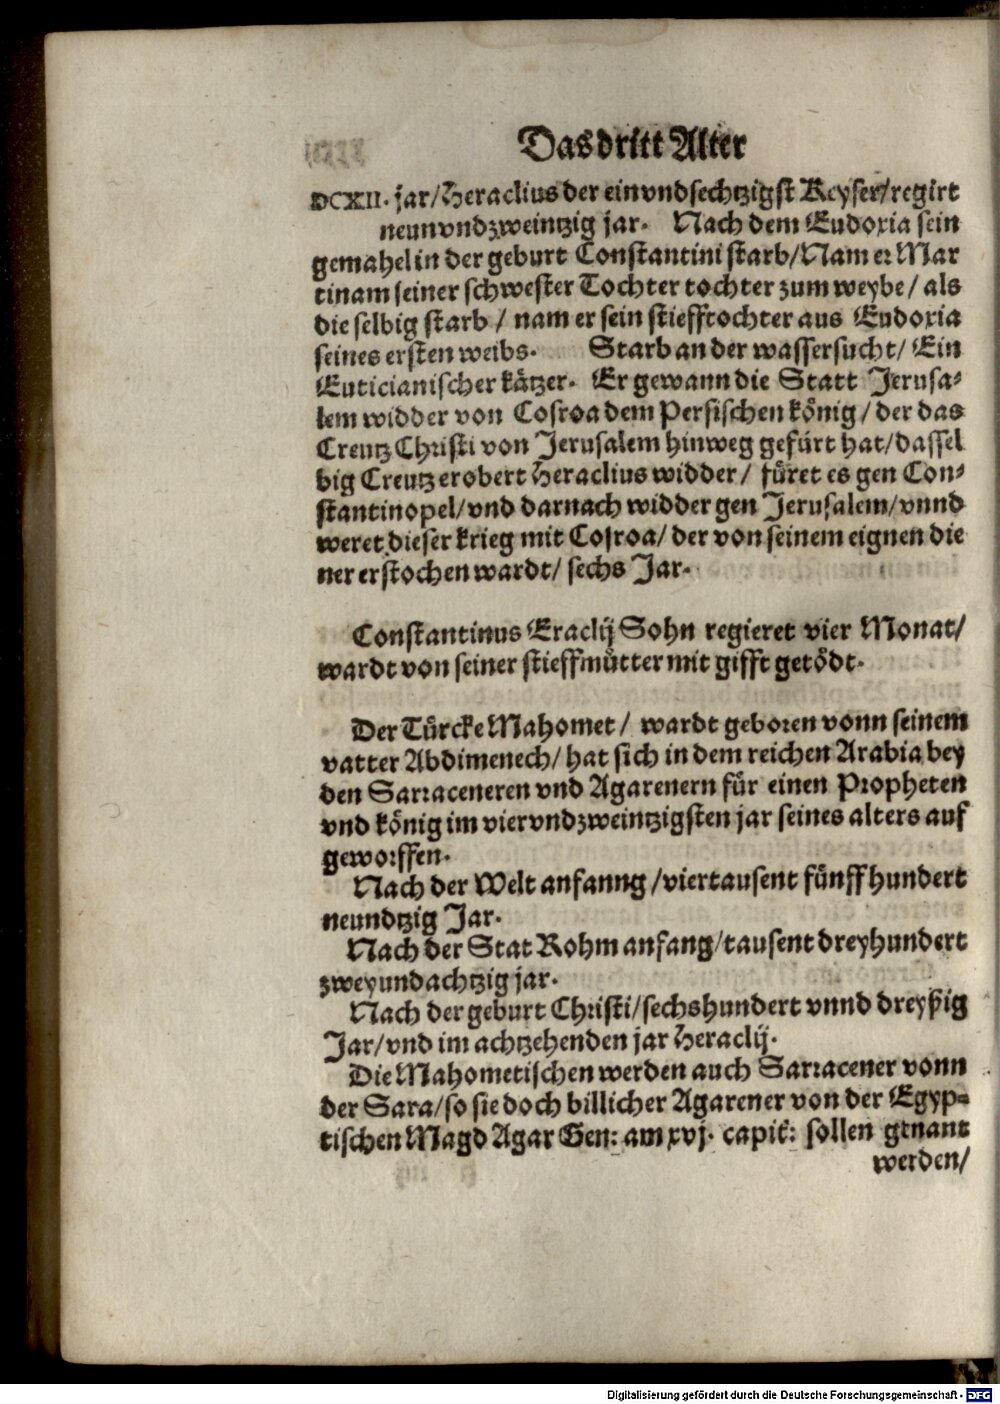 Das dritt Alter
DCXII. jar/Heraclius der einvndsechtzigst Keyser/regirt
neunvndzweintzig jar. Nach dem Eudoxia sein
gemahel in der geburt Constantini starb/Nam er Mar
tinam seiner schwester Tochter tochter zum weybe/ als
die selbig starb / nam er sein stiefftochter aus Eudoxia
seines ersten weibs. Starb an der wassersucht/ Ein
Euticianischer kätzer. Er gewann die Statt Jerusa-
lem widder von Cosroa dem Persischen könig/ der das
Creutz Christi von Jerusalem hinweg gefürt hat/dassel
big Creutz erobert Heraclius widder/ füret es gen Con-
stantinopel/vnd darnach widder gen Jerusalem/vnnd
weret dieser krieg mit Cosroa/ der von seinem eignen die
ner erstochen wardt/ sechs Jar.
Constantinus Eraclij Sohn regieret vier Monat/
wardt von seiner stieffmütter mit gifft getödt.
Der Türcke Mahomet/ wardt geboren vonn seinem
vatter Abdimenech/ hat sich in dem reichen Arabia bey
den Sarraceneren vnd Agarenern für einen Propheten
vnd könig im viervndzweintzigsten jar seines alters auf
geworffen.
Nach der Welt anfanng /viertausent fünffhundert
neundtzig Jar.
Nach der Stat Rohm anfang/tausent dreyhundert
zweyundachtzig jar.
Nach der geburt Christi/sechshundert vnnd dreyßig
Jar/vnd im achtzehenden jar Heraclij.
Die Mahometischen werden auch Sarracener vonn
der Sara/so sie doch billicher Agarener von der Egyp-
tischen Magd Agar Gen: am xvj. capit: sollen genant
werden/
Digitalisierung gefördert durch die Deutsche Forschungsgemeinschaft - DFG